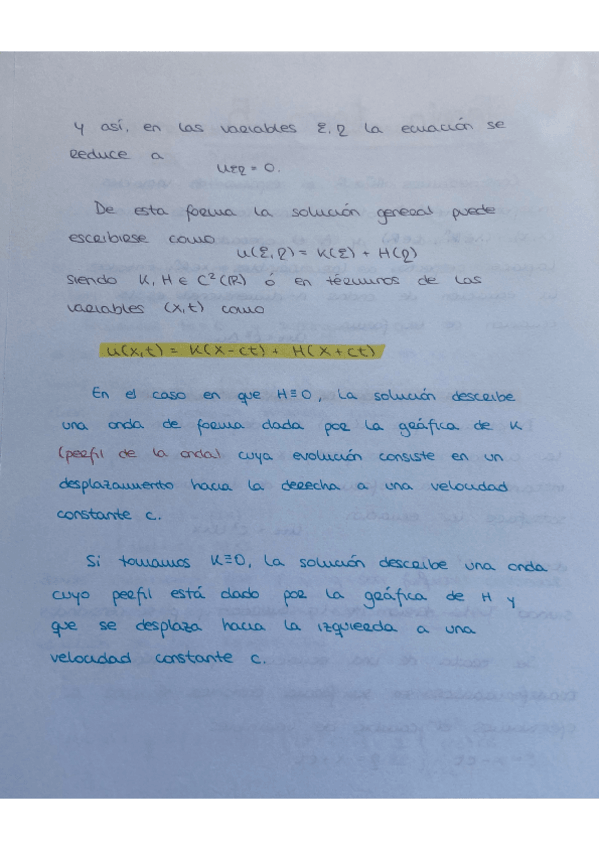 y así, en las variables ξ, η la ecuación se
reduce a
uξη = 0.
De esta forma la solución general puede
escribirse como
u(ξ, η) = K(ξ) + H(η)
siendo K, H ∈ C²(ℝ) ó en términos de las
variables (x,t) como
u(x,t) = K(x-ct) + H(x+ct)
En el caso en que H≡0, la solución describe
una onda de forma dada por la gráfica de K
(perfil de la onda) cuya evolución consiste en un
desplazamiento hacia la derecha a una velocidad
constante c.
Si tomamos K≡0, la solución describe una onda
cuyo perfil está dado por la gráfica de H y
que se desplaza hacia la izquierda a una
velocidad constante c.